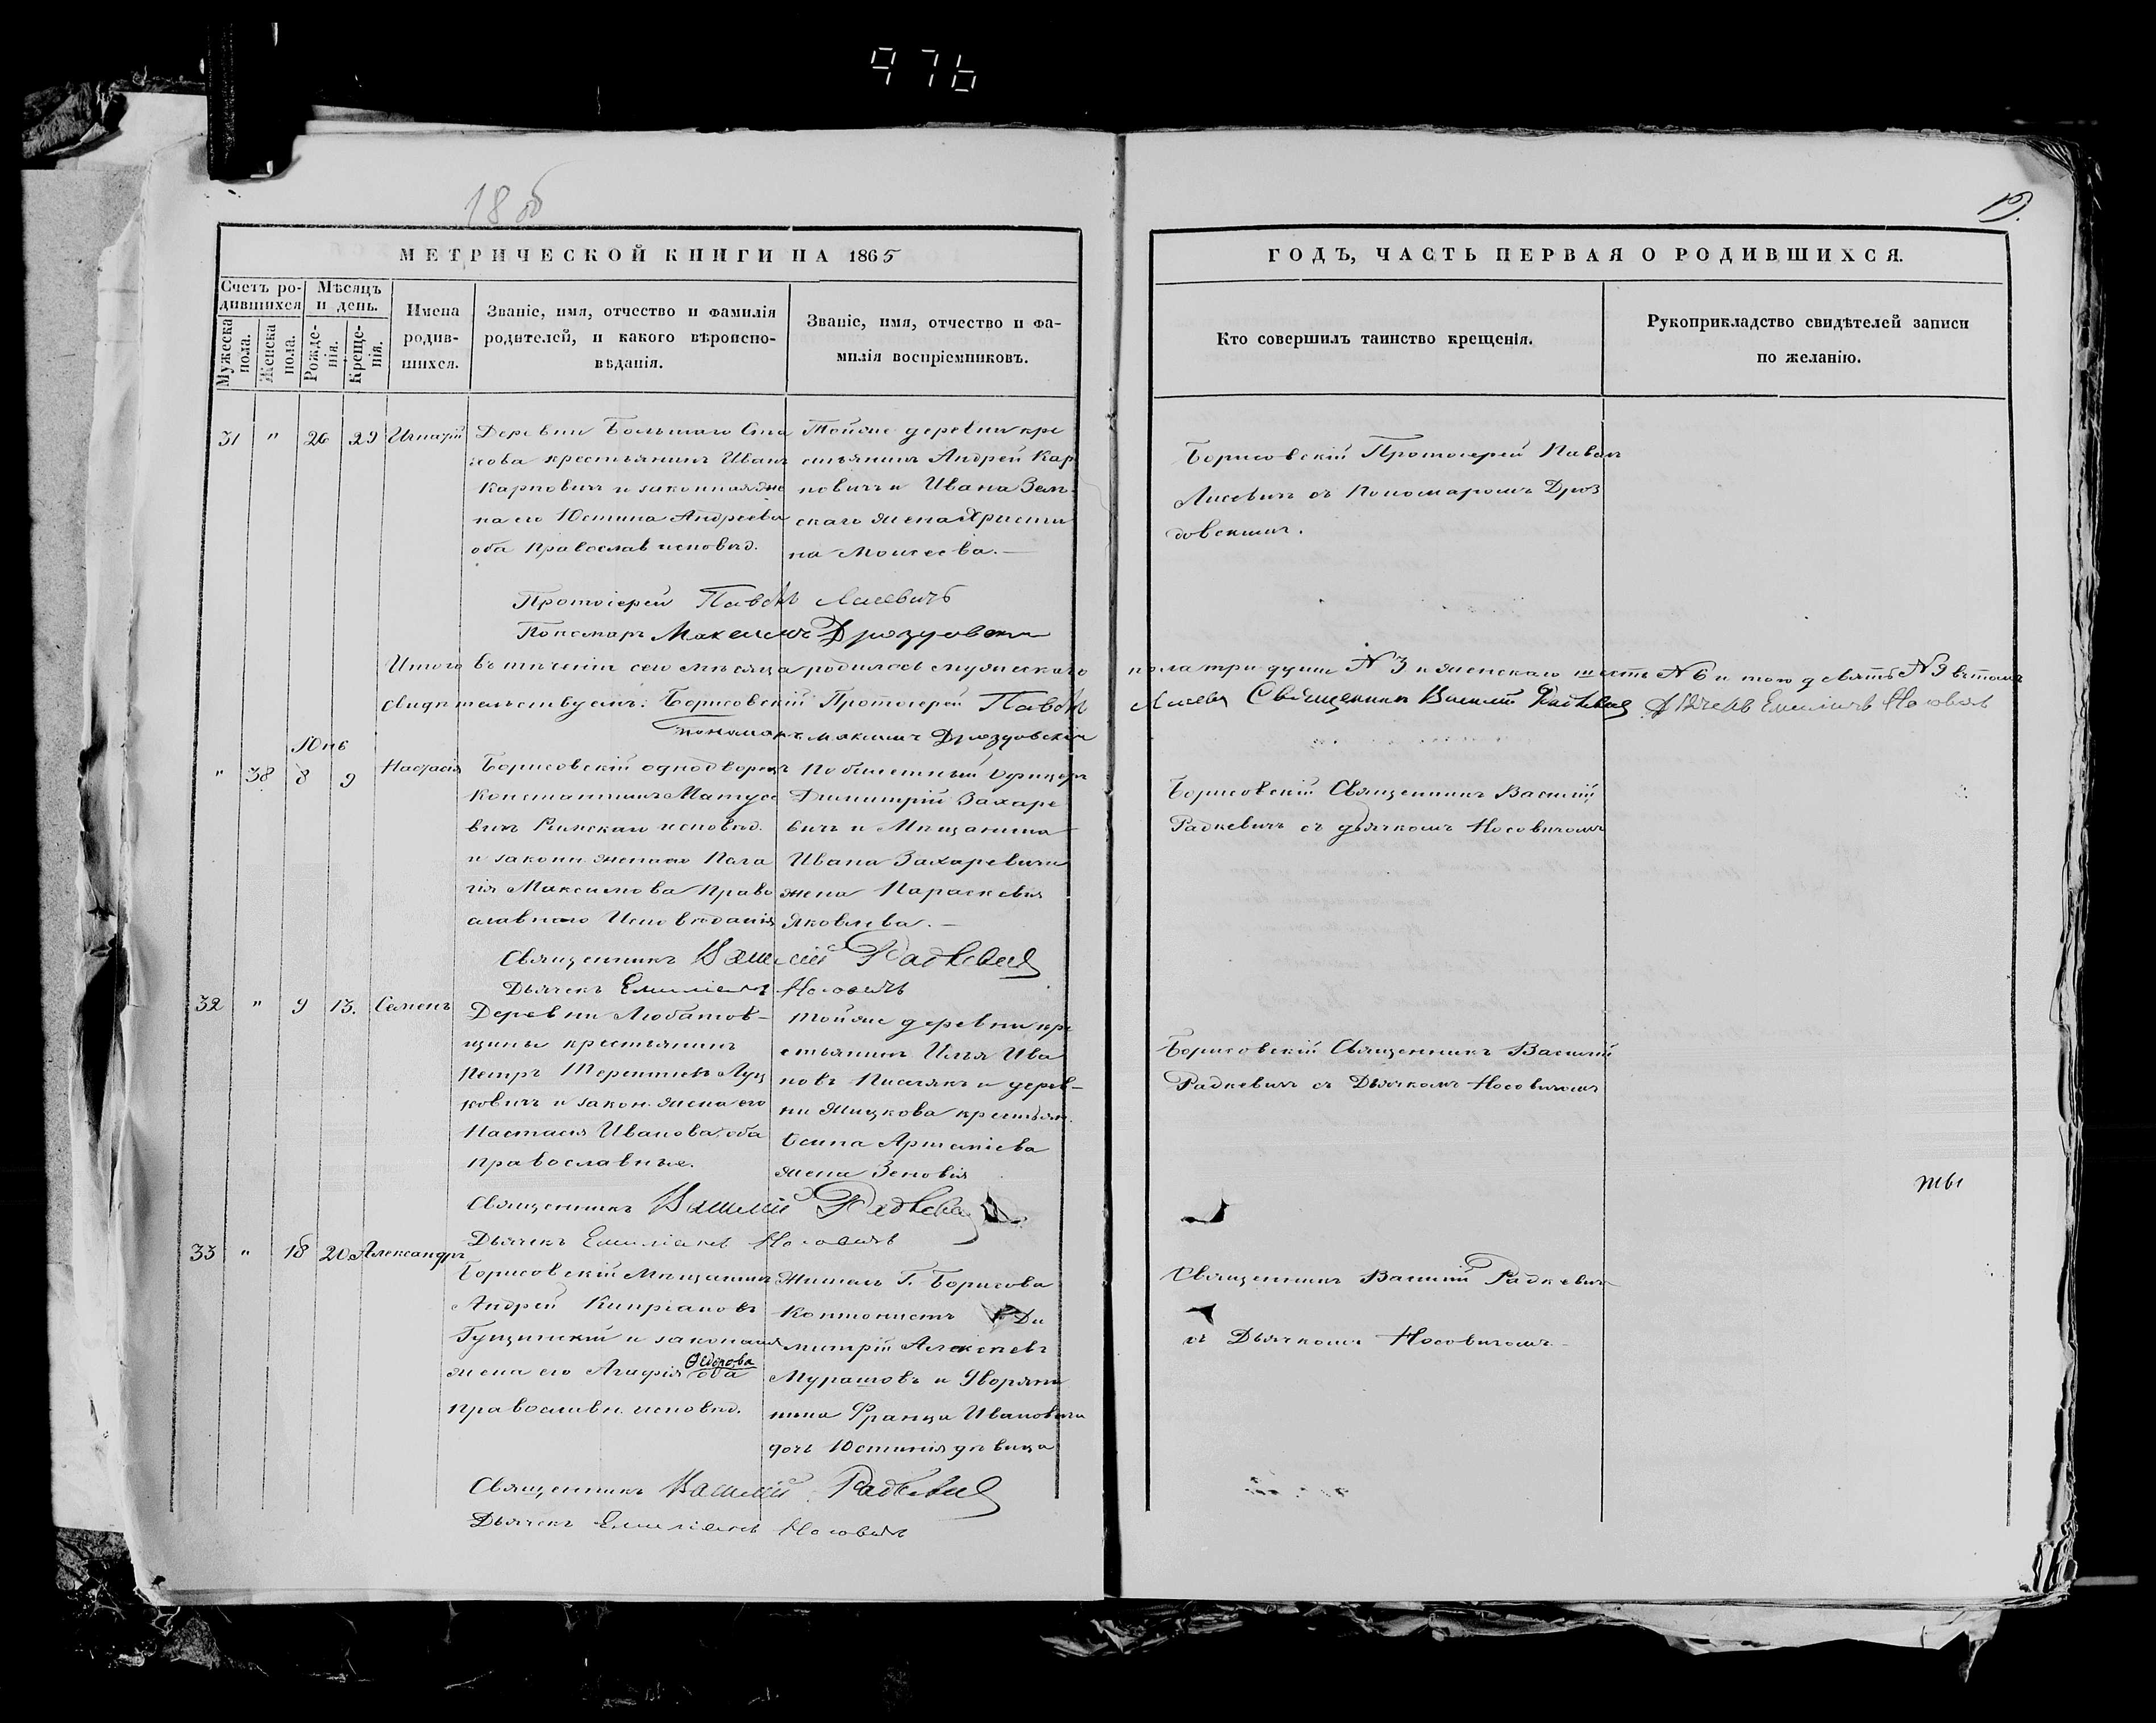 97b
18
19.
МЕТРИЧЕСКОЙ КНИГИ НА 1865
ГОДЪ, ЧАСТЬ ПЕРВАЯ О РОДИВШИХСЯ.
Счетъ ро-
дившихся
Мужеска
пола.
Женска
пола.
Мѣсяцъ
и день.
Рожде-
нія.
Креще-
нія.
Имена
родив-
шихся.
Званіе, имя, отчество и фамилія
родителей, и какого вѣроиспо-
вѣданія.
Званіе, имя, отчество и фа-
милія воспріемниковъ.
Кто совершилъ таинство крещенія.
Рукоприкладство свидѣтелей записи
по желанію.
31 " 26 29 Игнатій
Деревни Большаго Ста
хова крестьянинъ Иванъ
Карповичъ и законная же
на его Юстина Андреева
оба православ исповѣд.
Тойже деревни кре
стьянинъ Андрей Кар
повичъ и Ивана Зелен
скаго жена Христи
на Моисеева.—
Борисовскій Протоіерей Павелъ
Лисевичъ съ Пономаромъ Дроз
довскимъ.
Протоіерей Павелъ Лисевичъ
Пономаръ Максимъ Дроздовскій
Итого въ теченіи сего мѣсяца родилось мужескаго пола три души №3 и женскаго шесть №6 и того девять №9 въ томъ
свидѣтельствуемъ: Борисовскій Протоіерей Павелъ Лисевичъ Священникъ Василій Радкевичъ Дьячекъ Емиліанъ Носовичъ
Пономаръ Максимъ Дроздовскій
Юнь
" 38 8 9 Настасія
Борисовскій однодворецъ
Константинъ Матусе
вичъ Римскаго исповѣд.
и законн. жена его Пела
гія Максимова Право
славнаго Исповѣданія
Побилетный Офицеръ
Димитрій Захаре
вичъ и Мѣщанина
Ивана Захаревича
жена Параскевія
Яковлева.—
Борисовскій Священникъ Василій
Радкевичъ съ дьячкомъ Носовичомъ
Священникъ Василій Радкевичъ
Дьячекъ Емиліанъ Носовичъ
32 " 9 13. Семенъ
Деревни Любатов-
щины крестьянинъ
Петръ Терентіевъ Луц
ковичъ и закон. жена его
Настасія Иванова, оба
православные.
Тойже деревни кре
стьянинъ Илья Ива
новъ Писчикъ и дерев-
ни Жицкова крестьян.
Осипа Артеміева
жена Зеновія
Борисовскій Священникъ Василій
Радкевичъ съ Дьячкомъ Носовичомъ
Священникъ Василій Радкевичъ
Дьячекъ Емиліанъ Носовичъ
33 " 18 20 Александръ
Борисовскій Мѣщанинъ
Андрей Кипріановъ
Гущинскій и законная
жена его Агафія Ѳедорова оба
православн. исповѣд.
Житель Г. Борисова
Кантонистъ Ди
митрій Алексѣевъ
Мурашовъ и Дворяни
нина Франца Ивановича
дочь Юстинія дѣвица
Священникъ Василій Радкевичъ
съ Дьячкомъ Носовичомъ.—
Священникъ Василій Радкевичъ
Дьячекъ Емиліанъ Носовичъ